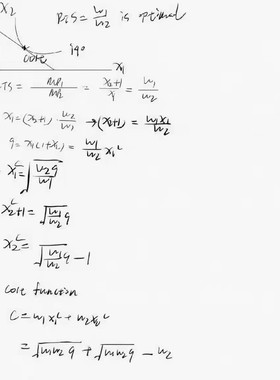 x₂ RTS = w₁/w₂ is optimal
cost
x₁
TS = MP₁/MP₂ = (x₂+1)/x₁ = w₁/w₂
x₁ = (x₂+1) · w₂/w₁ → (x₂+1) = w₁x₁/w₂
q = x₁(1+x₂) = w₁/w₂ x₁²
x₁ᶜ = √(w₂q/w₁)
x₂ᶜ+1 = √(w₁/w₂ q)
x₂ᶜ = √(w₁/w₂ q) − 1
cost function
C = w₁x₁ᶜ + w₂x₂ᶜ
= √(w₁w₂q) + √(w₁w₂q) − w₂